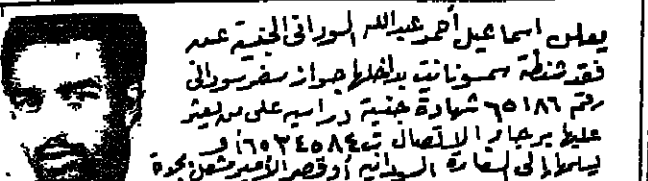 يعلن اسماعيل أحمد عبدالله السوداني الجنسية عن
فقد شنطة سمسونايت بداخلها جواز سفر سوداني
رقم ٦٥١٨٦ شهادة جنسية دراسيه على من يعثر
عليها برجاء الاتصال ت ٦٥٣٤٥٨٤ أو
ليسلمها إلى السفارة السودانيه أو قصر الأمير مشعل بجدة